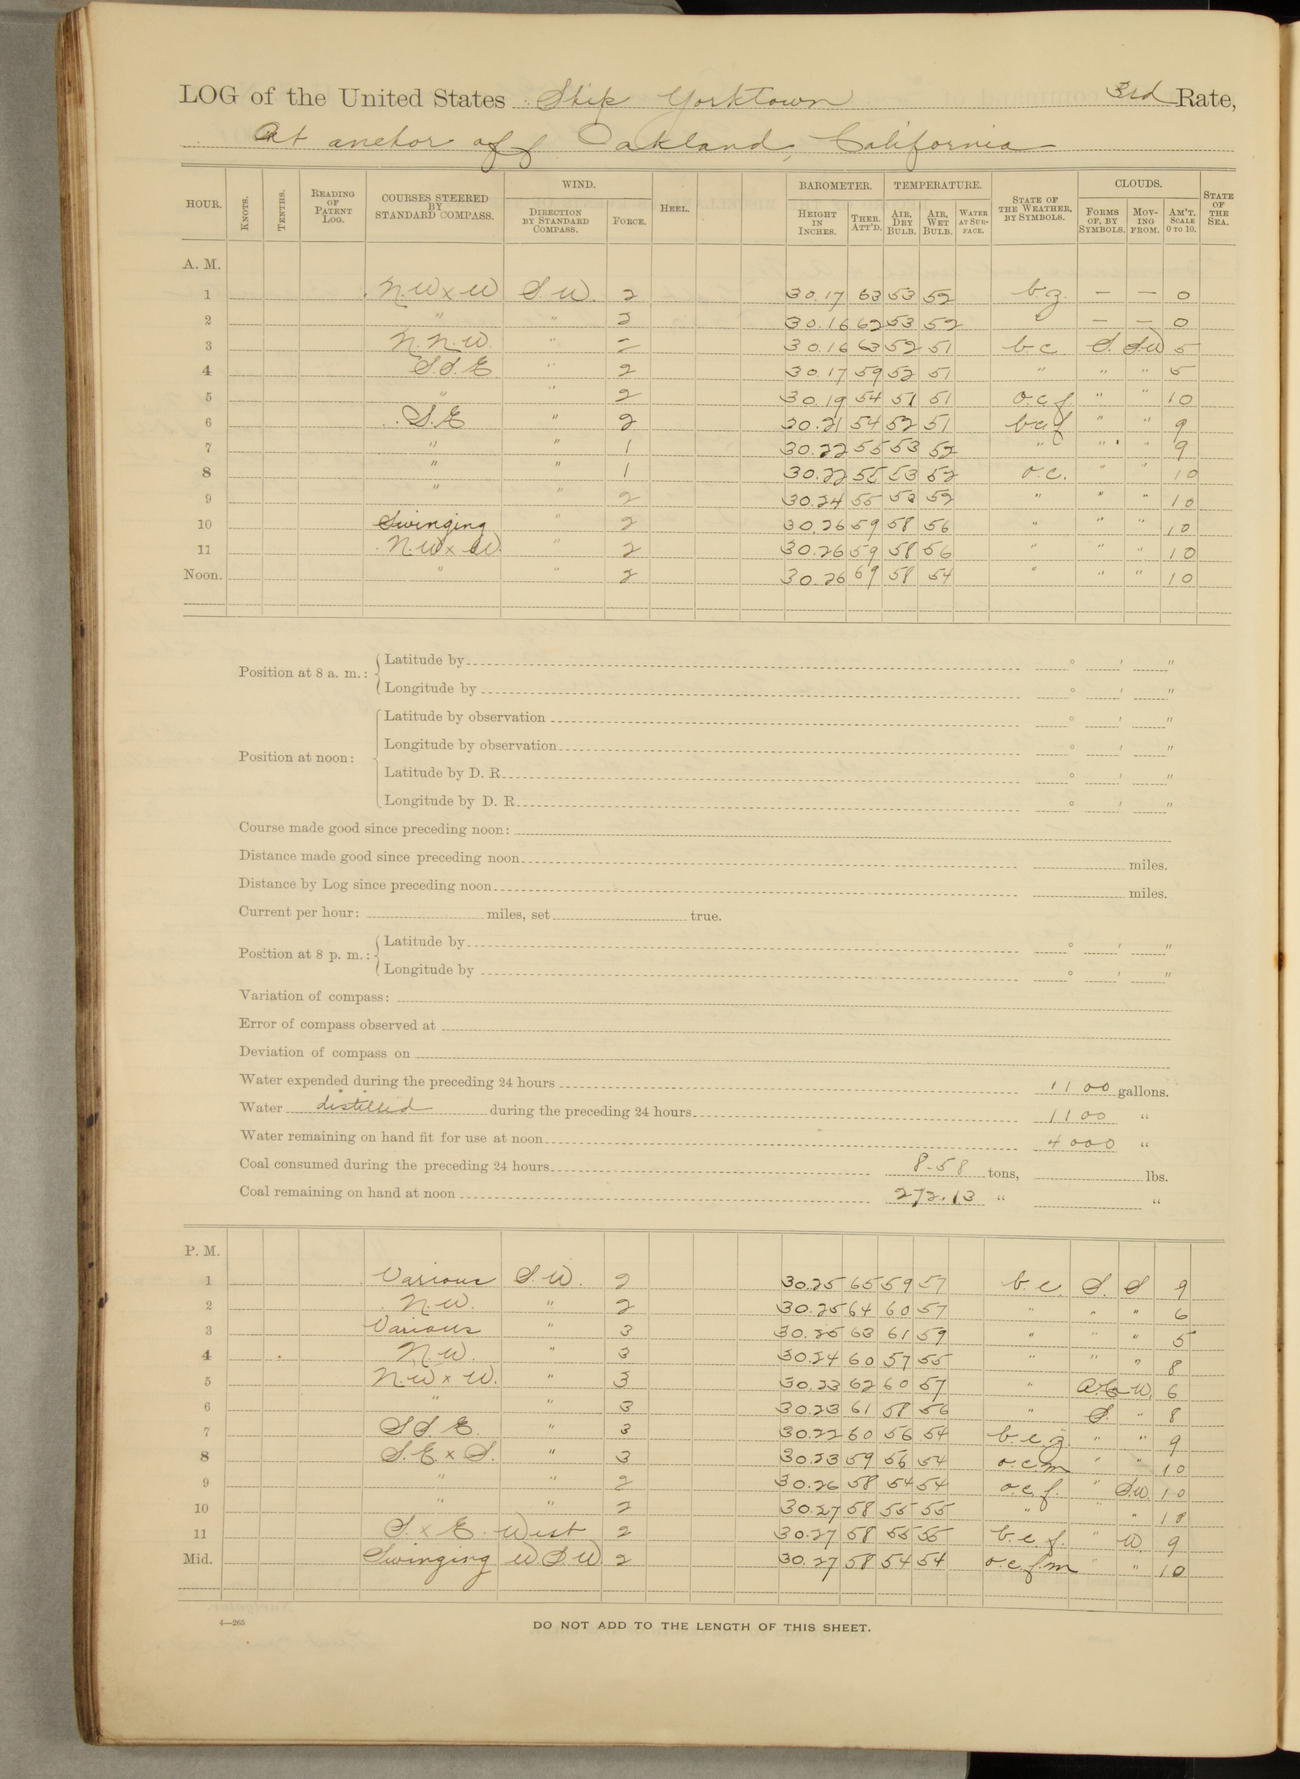 LOG of the United States Ship Yorktown 3rd Rate,
At anchor off Oakland, California
HOUR. KNOTS. TENTHS. READING OF PATENT LOG. COURSES STEERED BY STANDARD COMPASS. WIND. DIRECTION BY STANDARD COMPASS. FORCE. HEEL. BAROMETER. HEIGHT IN INCHES. THER. ATT'D. TEMPERATURE. AIR, DRY BULB. AIR, WET BULB. WATER AT SURFACE. STATE OF THE WEATHER, BY SYMBOLS. CLOUDS. FORMS OF, BY SYMBOLS. MOVING FROM. AM'T. SCALE 0 TO 10. STATE OF THE SEA.
A. M.
1 N.W x W S.W. 2 30.17 63 53 52 b.z. — — 0
2 " " 2 30.16 62 53 52 " — — 0
3 N.N.W. " 2 30.16 63 52 51 b.c. S. SW 5
4 S.S.E " 2 30.17 59 52 51 " " " 5
5 " " 2 30.19 54 51 51 o.c.f " " 10
6 S.E " 2 30.21 54 52 51 b.c.f " " 9
7 " " 1 30.22 55 53 52 " " " 9
8 " " 1 30.22 55 53 52 o.c. " " 10
9 " " 2 30.24 55 53 52 " " " 10
10 Swinging " 2 30.26 59 58 56 " " " 10
11 N.W x W. " 2 30.26 59 58 56 " " " 10
Noon. " " 2 30.26 69 58 54 " " " 10
Position at 8 a. m.: Latitude by ° ′ ″
Longitude by ° ′ ″
Position at noon: Latitude by observation ° ′ ″
Longitude by observation ° ′ ″
Latitude by D. R. ° ′ ″
Longitude by D. R. ° ′ ″
Course made good since preceding noon:
Distance made good since preceding noon miles.
Distance by Log since preceding noon miles.
Current per hour: miles, set true.
Position at 8 p. m.: Latitude by ° ′ ″
Longitude by ° ′ ″
Variation of compass:
Error of compass observed at
Deviation of compass on
Water expended during the preceding 24 hours 1100 gallons.
Water distilled during the preceding 24 hours 1100 "
Water remaining on hand fit for use at noon 4000 "
Coal consumed during the preceding 24 hours 8-58 tons, lbs.
Coal remaining on hand at noon 272.13 " "
P. M.
1 Various S.W. 2 30.25 65 59 57 b.c. S. S 9
2 N.W. " 2 30.25 64 60 57 " " " 6
3 Various " 3 30.25 63 61 59 " " " 5
4 N.W. " 3 30.24 60 57 55 " " " 8
5 N.W x W. " 3 30.23 62 60 57 " W. 6
6 " " 3 30.23 61 58 56 " S. " 8
7 S S E. " 3 30.22 60 56 54 b.c.g. " " 9
8 S.E. x S. " 3 30.23 59 56 54 o.c.m " " 10
9 " " 2 30.26 58 54 54 o.c.f. " S.W. 10
10 " " 2 30.27 58 55 55 " " " 10
11 S. x E. West 2 30.27 58 55 55 b.c.f. " W. 9
Mid. Swinging W.S.W. 2 30.27 58 54 54 o.c.f.m " " 10
4—265
DO NOT ADD TO THE LENGTH OF THIS SHEET.